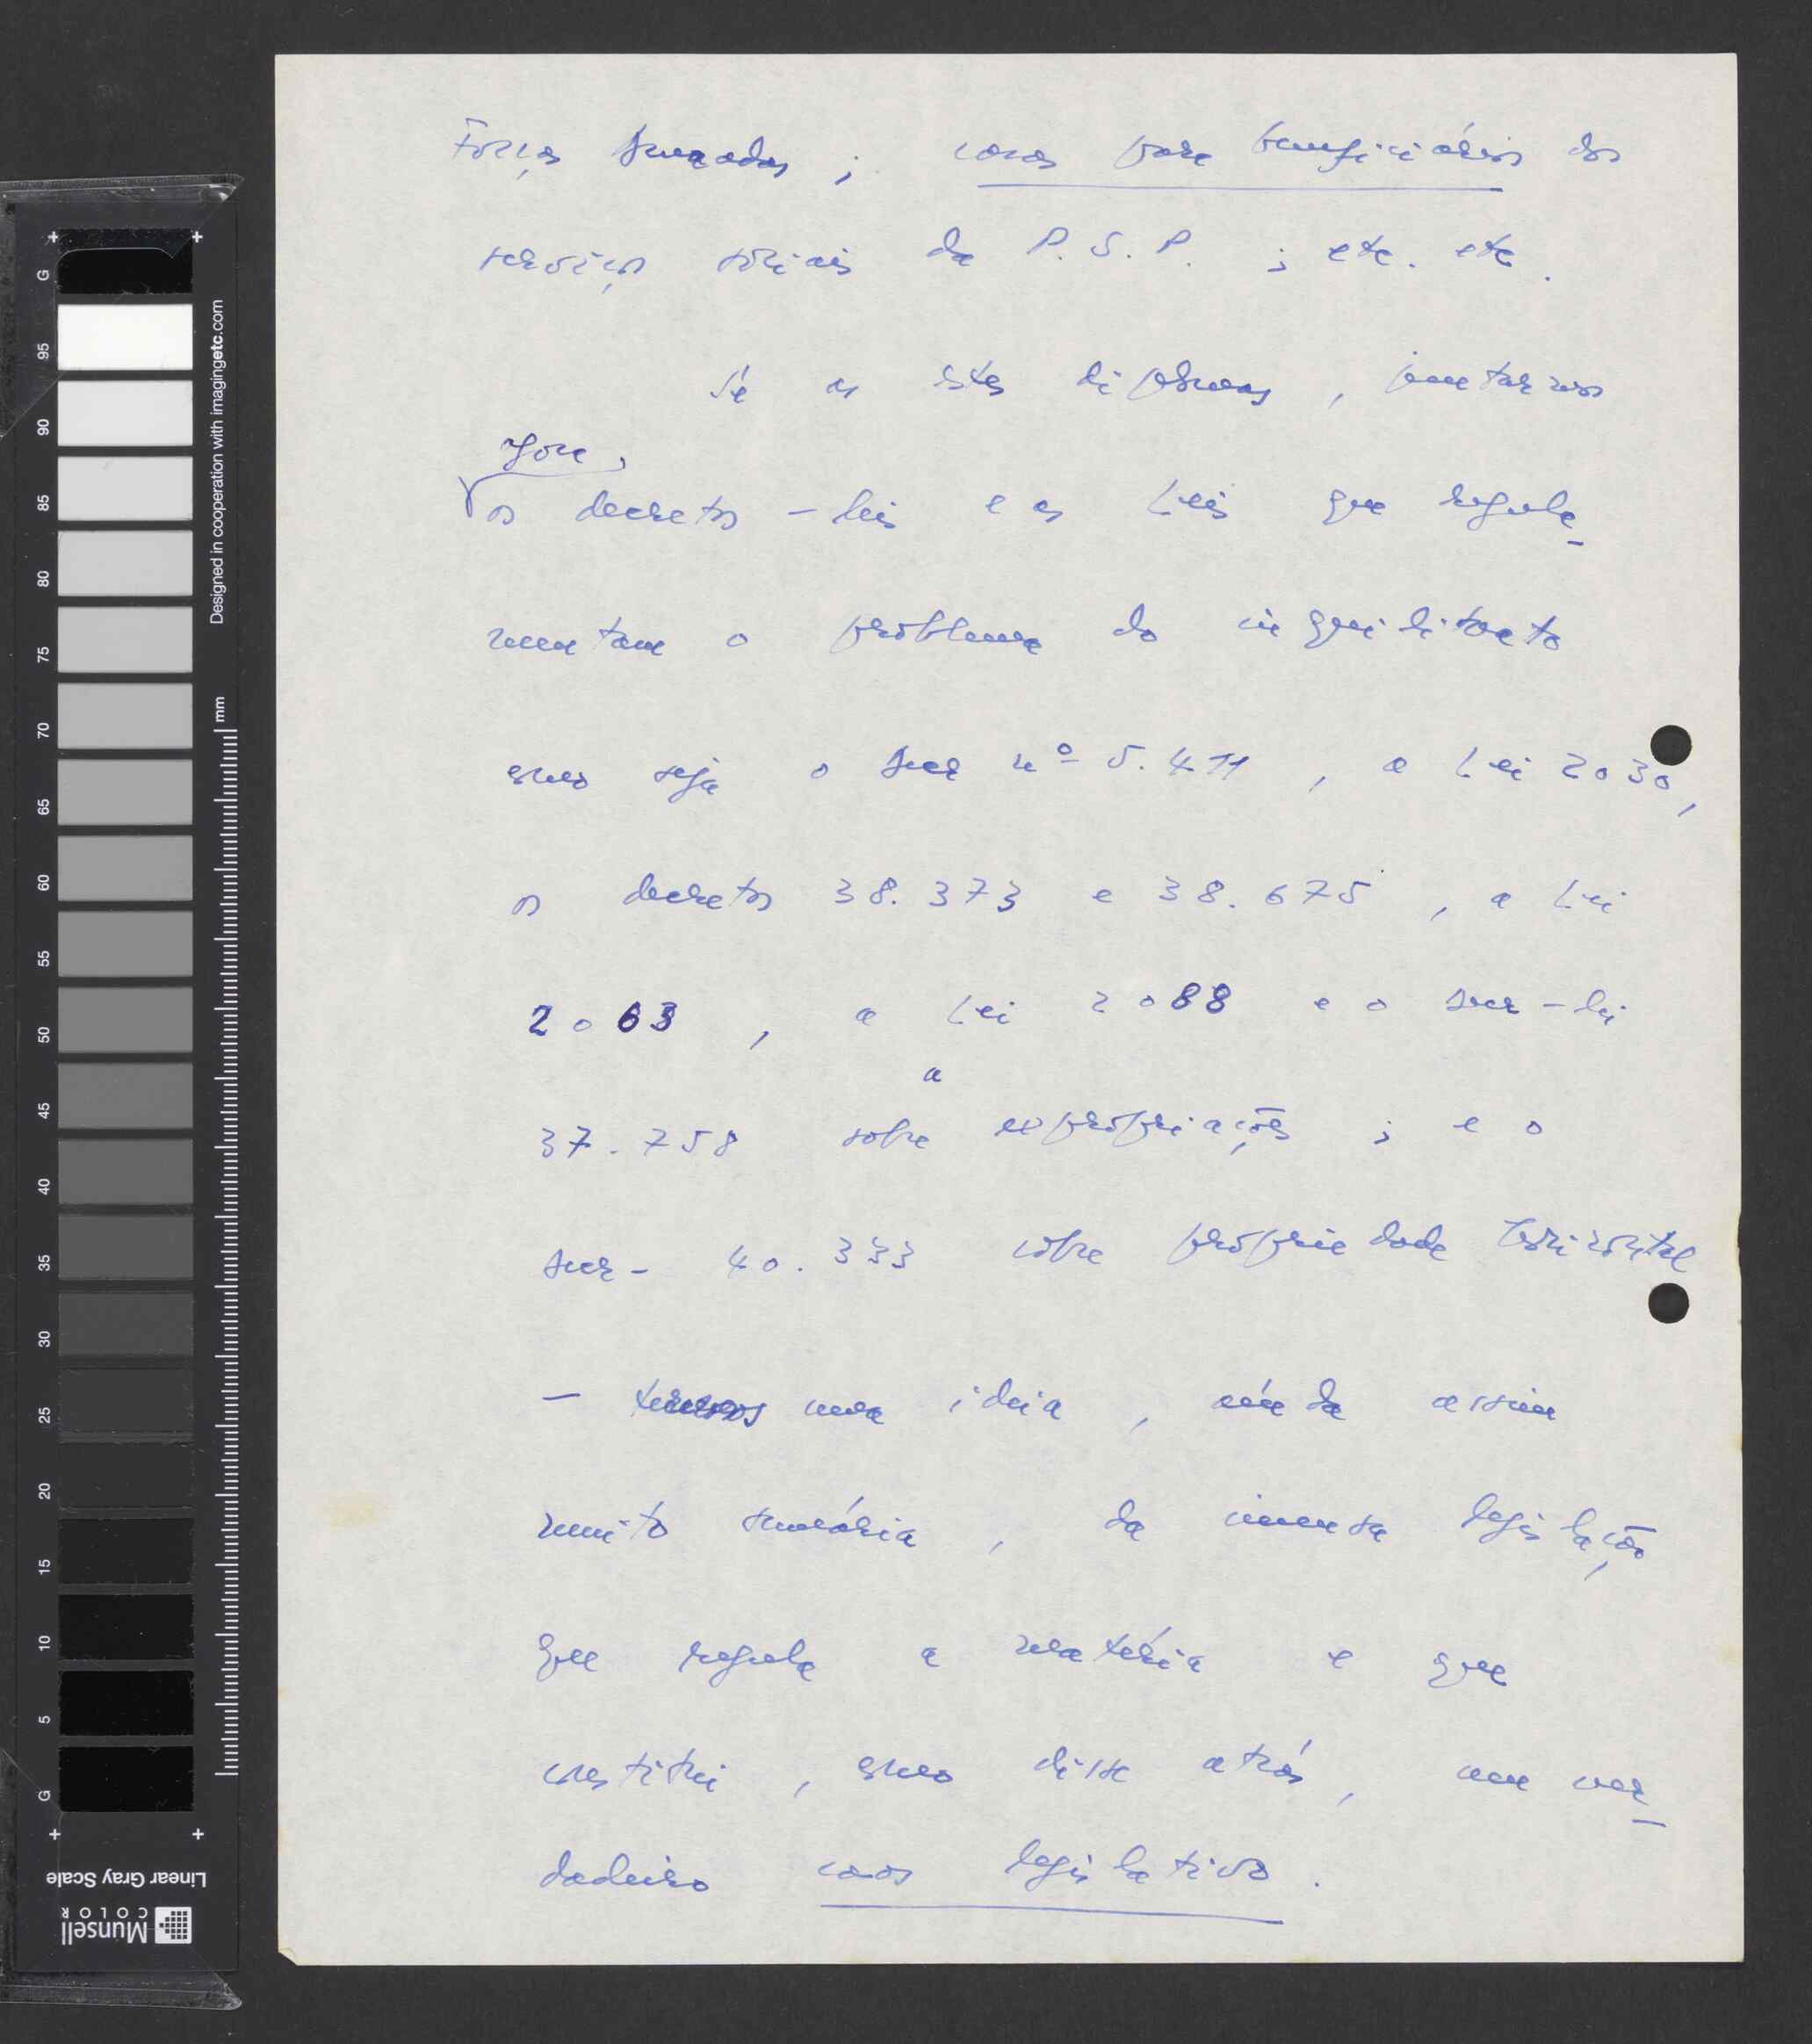 Forças Armadas; casas para beneficiários dos
serviços sociais da P.S.P.; etc. etc.
Se a estes diplomas, juntarmos
agora,
os decretos-leis e as Leis que regula-
mentam o problema do inquilinato
como seja o dec nº 5.411, a Lei 2030,
os decretos 38.373 e 38.675, a Lei
2063, a Lei 2088 e o dec-lei
a
37.758 sobre expropriações; e o
dec- 40.333 sobre propriedade horizontal
- teremos uma ideia, ainda assim
muito sumária, da imensa legislação
que regula a matéria e que
constitui, como disse atrás, um ver-
dadeiro caos legislativo.
G 95 90 85 80 75 70 65 60 55 50 45 40 35 30 25 20 15 10 5 G
Designed in cooperation with imagingetc.com
mm
Linear Gray Scale
Munsell
COLOR